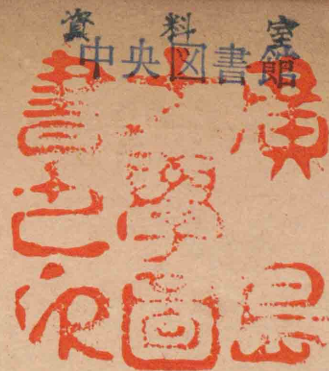 資料室
中央図書館
廣島
大學圖
書之印